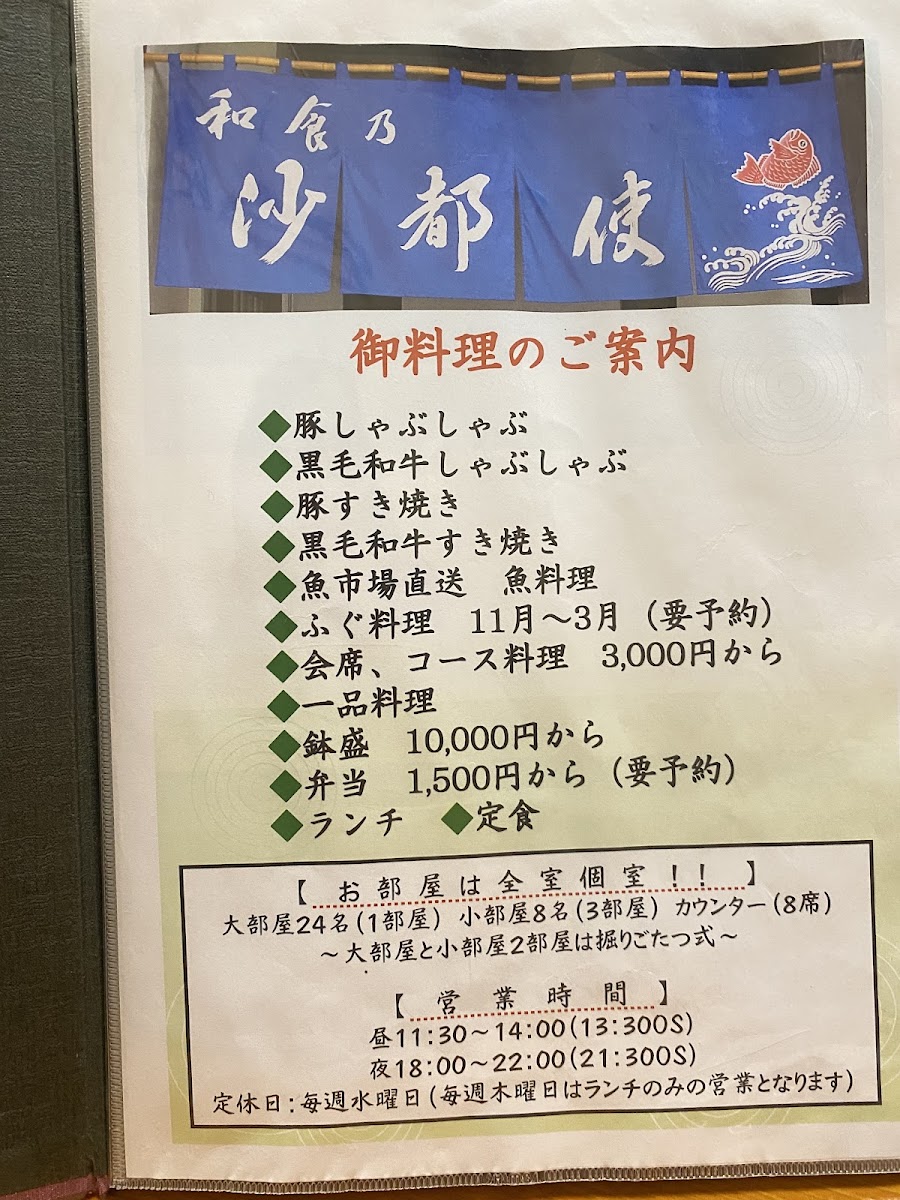 和食乃
沙都使
御料理のご案内
◆豚しゃぶしゃぶ
◆黒毛和牛しゃぶしゃぶ
◆豚すき焼き
◆黒毛和牛すき焼き
◆魚市場直送　魚料理
◆ふぐ料理　11月～3月（要予約）
◆会席、コース料理　3,000円から
◆一品料理
◆鉢盛　10,000円から
◆弁当　1,500円から（要予約）
◆ランチ　◆定食
【 お部屋は全室個室！！ 】
大部屋24名(1部屋) 小部屋8名(3部屋) カウンター(8席)
～大部屋と小部屋2部屋は掘りごたつ式～
【 営業時間 】
昼11:30～14:00(13:30OS)
夜18:00～22:00(21:30OS)
定休日:毎週水曜日(毎週木曜日はランチのみの営業となります)